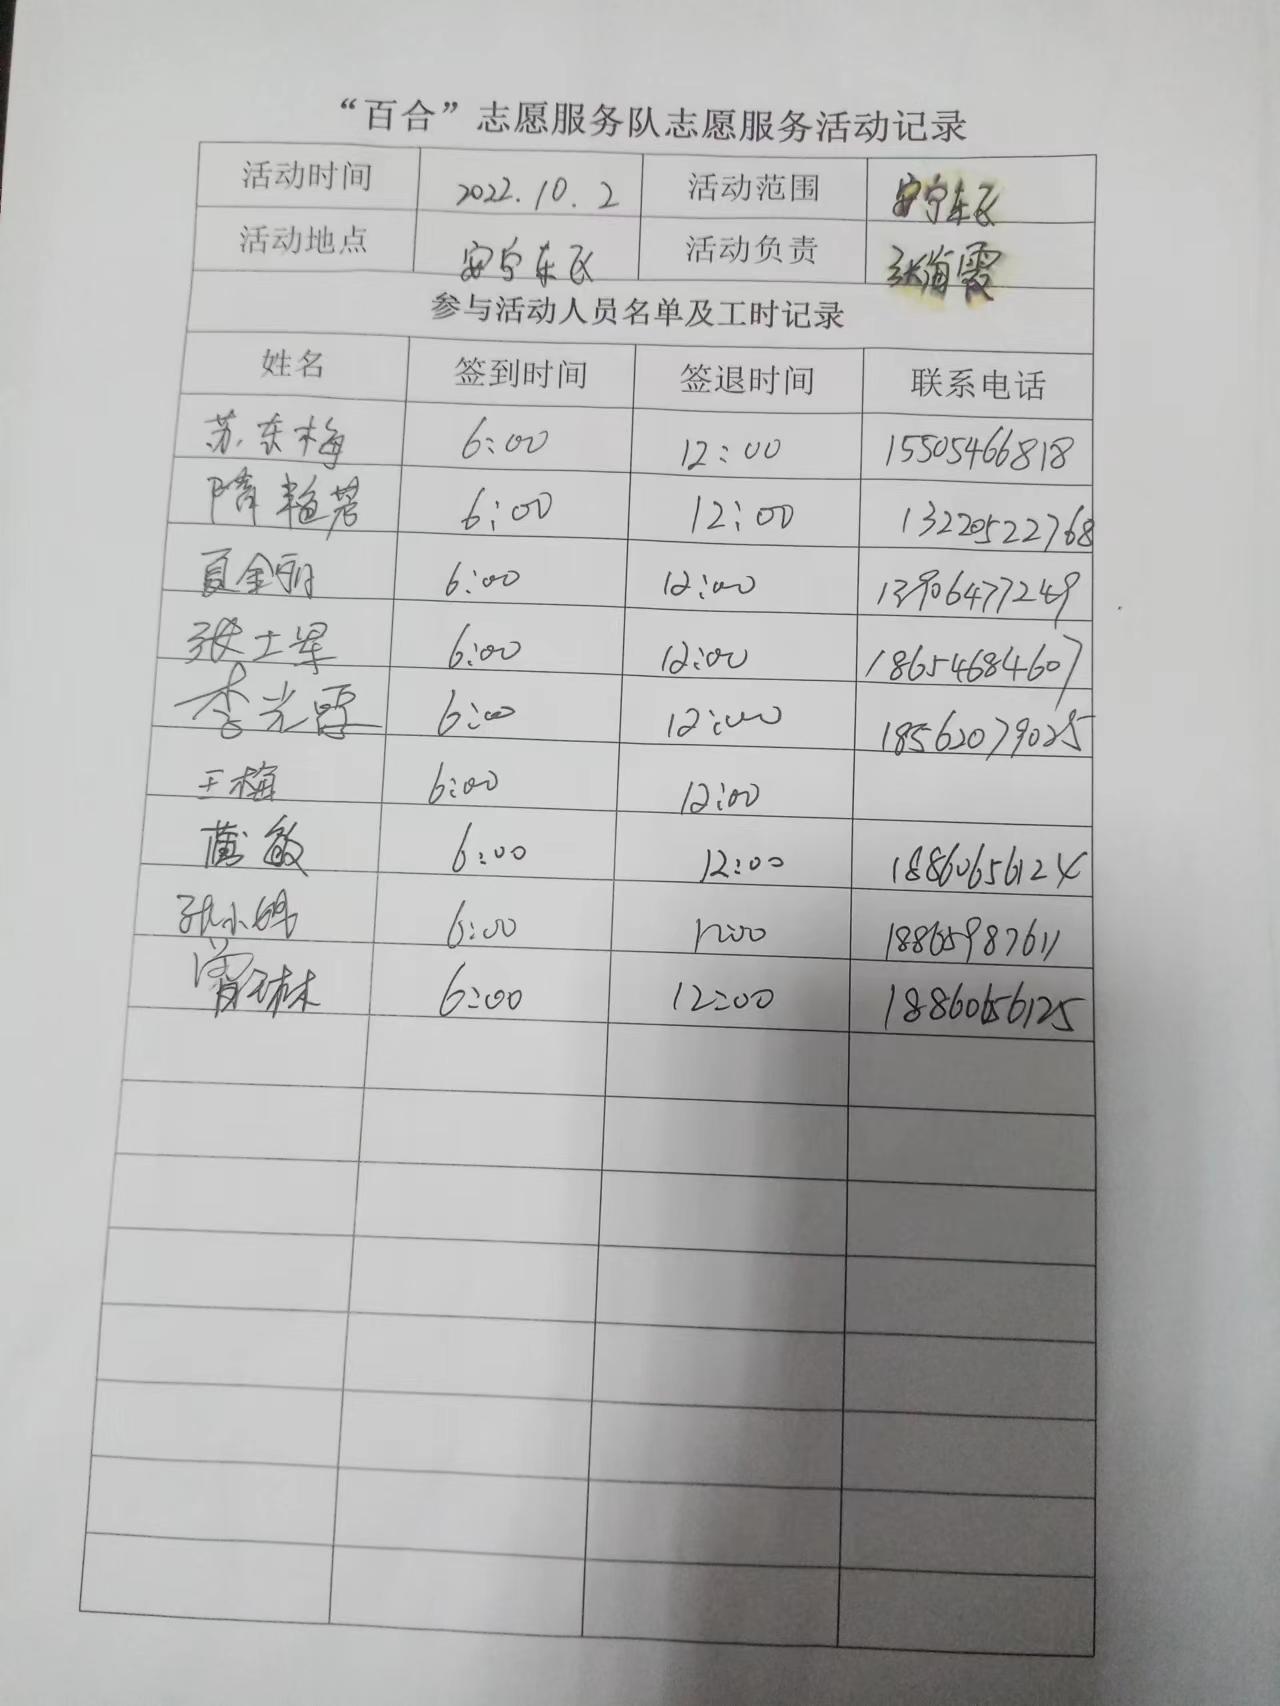 “百合”志愿服务队志愿服务活动记录
活动时间 2022.10.2 活动范围 安宁东区
活动地点 安宁东区 活动负责 张海霞
参与活动人员名单及工时记录
姓名 签到时间 签退时间 联系电话
苏东梅 6:00 12:00 15505466818
隋艳茗 6:00 12:00 13220522768
夏金丽 6:00 12:00 13906477249
张士军 6:00 12:00 18654684607
李光雪 6:00 12:00 18562079025
王梅 6:00 12:00
黄敏 6:00 12:00 18860656124
张小娟 6:00 12:00 18865987611
6:00 12:00 18860656125